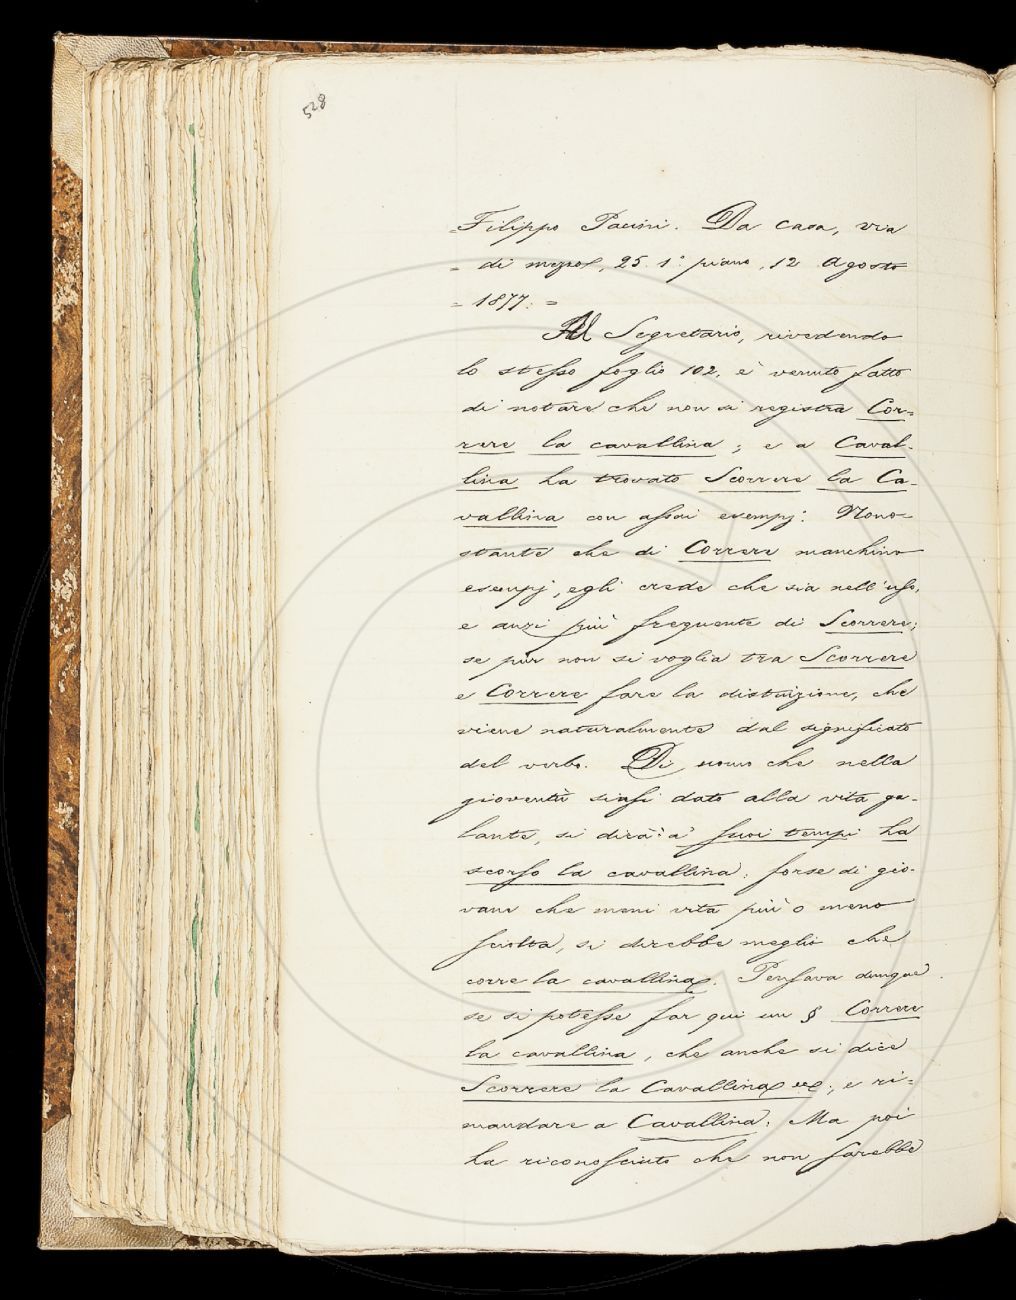 528
= Filippo Pacini. Da casa, via
= di mezzo, 25. 1º piano, 12 Agosto
= 1877. =
Al Segretario, rivedendo
lo stesso foglio 102, è venuto fatto
di notare che non si registra Cor=
rere la cavallina; e a Caval-
lina ha trovato Scorrere la Ca-
vallina con assai esempj. Nono-
stante che di Correre manchino
esempj, egli crede che sia nell'uso,
e anzi più frequente di Scorrere;
se pur non si voglia tra Scorrere
e Correre fare la distinzione, che
viene naturalmente dal significato
del verbo. Di uomo che nella
gioventù siasi dato alla vita ga-
lante, si dirà: a' suoi tempi ha
scorso la cavallina: forse di gio-
vane che meni vita più o meno
sciolta, si direbbe meglio che
corre la cavallina. Pensava dunque
se si potesse far qui un § Correre
la cavallina, che anche si dice
Scorrere la Cavallina ec; e ri=
mandare a Cavallina. Ma poi
ha riconosciuto che non sarebbe